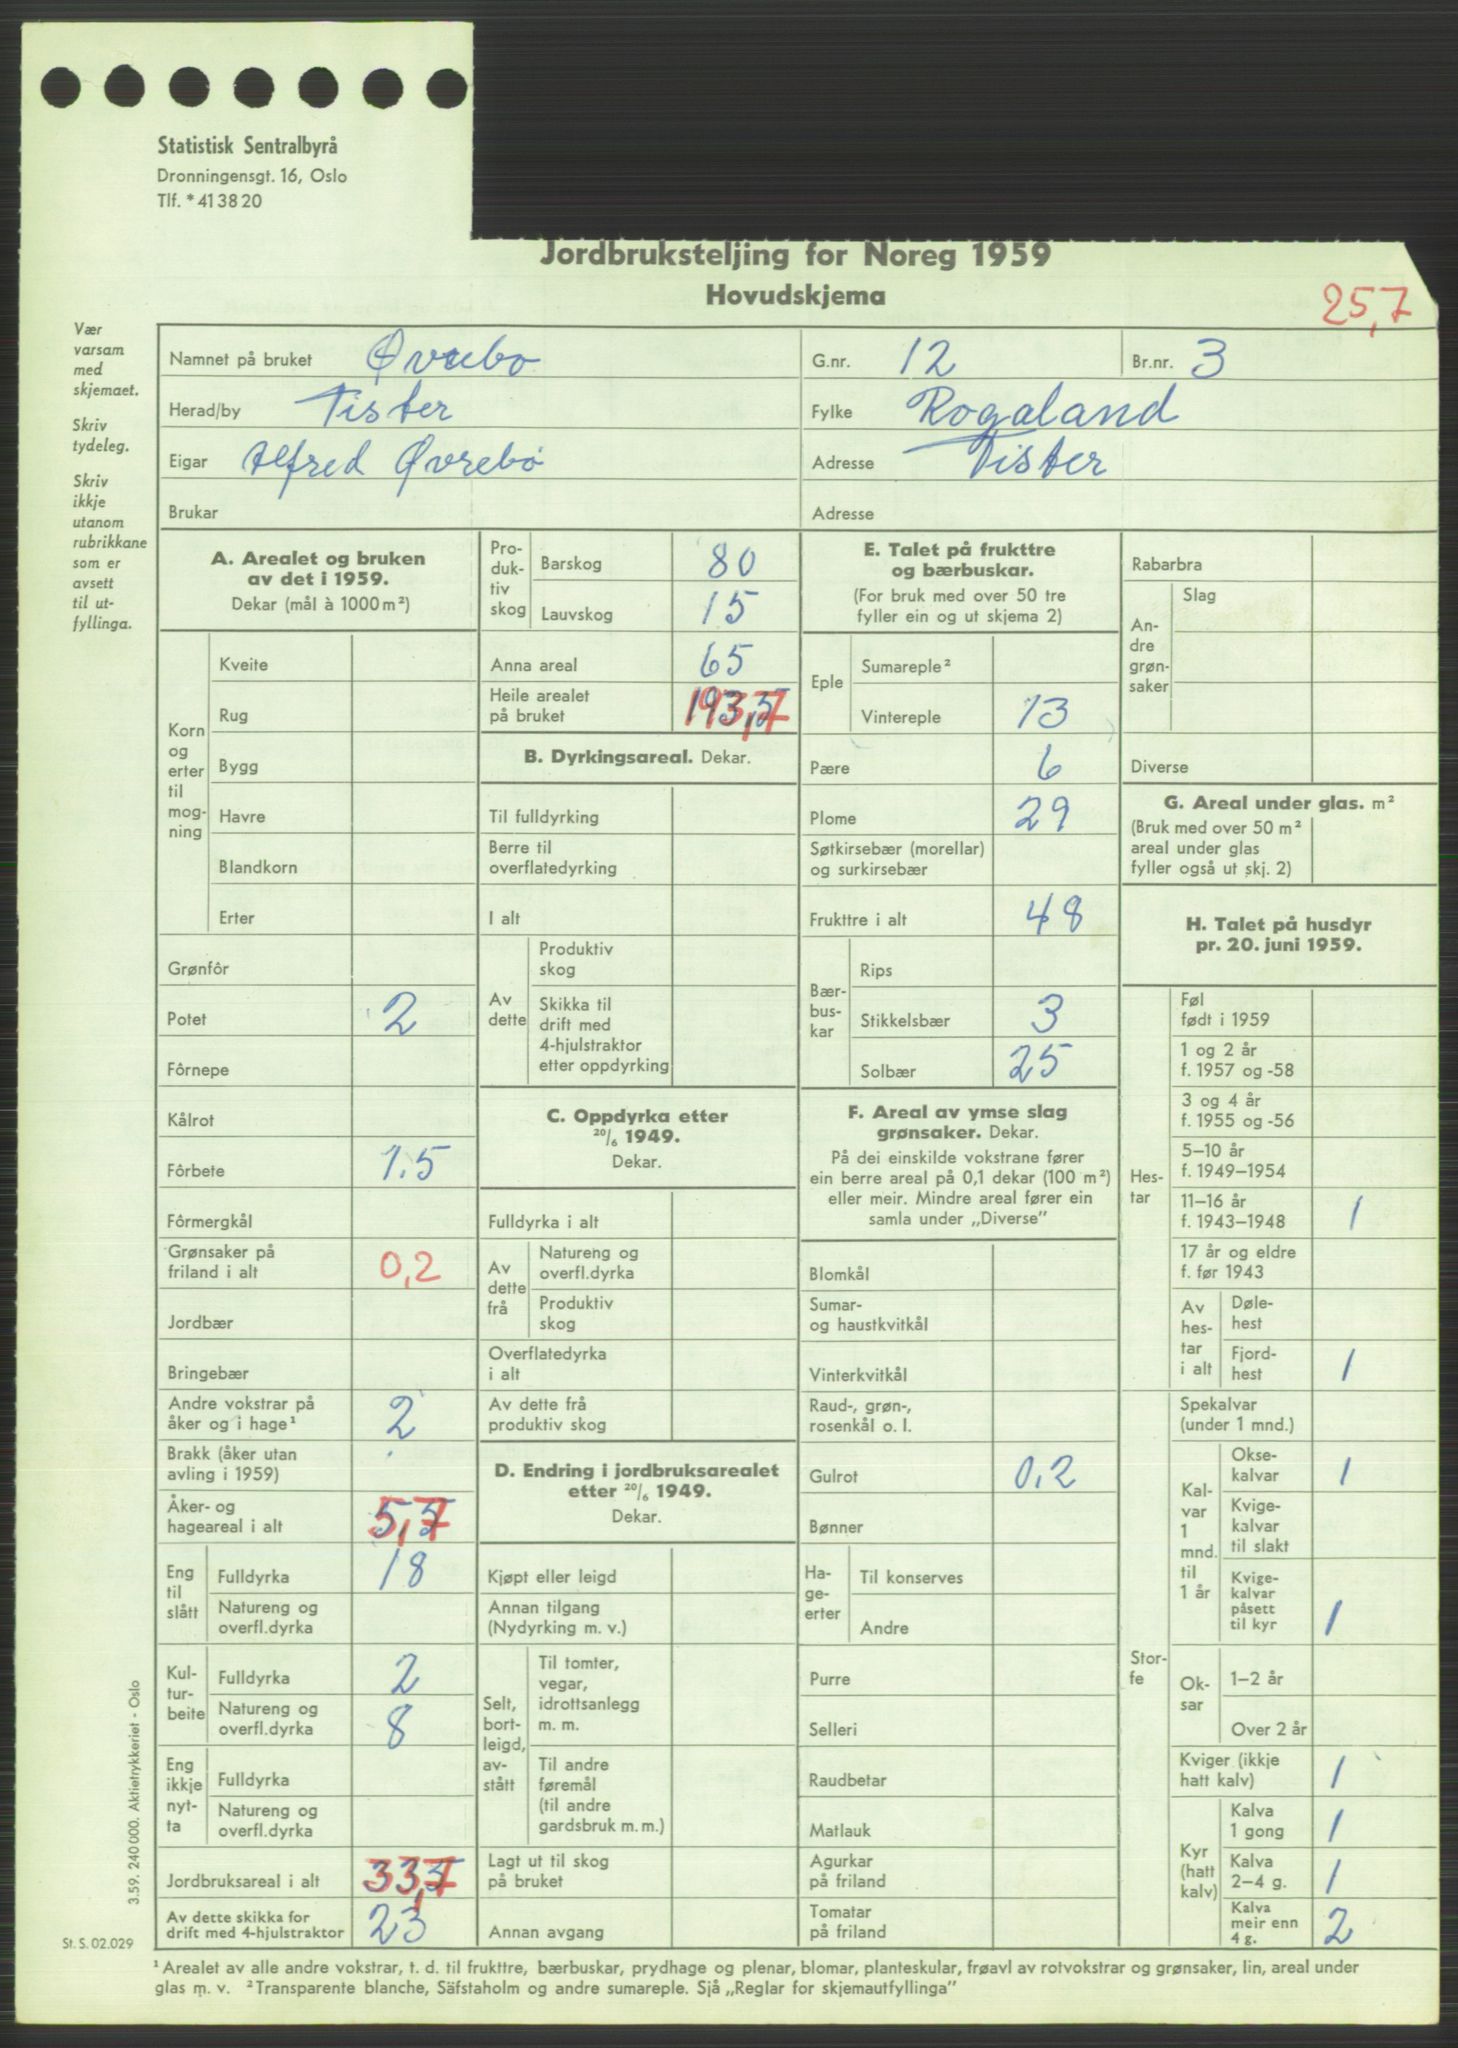 Statistisk Sentralbyrå
Dronningensgt. 16, Oslo
Tlf. *41 38 20
Jordbruksteljing for Noreg 1959
Hovudskjema
25,7
Vær
varsam
med
skjemaet.
Skriv
tydeleg.
Skriv
ikkje
utanom
rubrikkane
som er
avsett
til ut-
fyllinga.
Namnet på bruket Øvrebo G.nr. 12 Br.nr. 3
Herad/by Tister Fylke Rogaland
Eigar Alfred Øvrebø Adresse Tister
Brukar Adresse
A. Arealet og bruken
av det i 1959.
Dekar (mål à 1000 m²)
Korn
og
erter
til
mog-
ning
Kveite
Rug
Bygg
Havre
Blandkorn
Erter
Grønfôr
Potet 2
Fôrnepe
Kålrot
Fôrbete 1.5
Fôrmergkål
Grønsaker på
friland i alt 0,2
Jordbær
Bringebær
Andre vokstrar på
åker og i hage¹ 2
Brakk (åker utan
avling i 1959)
Åker- og
hageareal i alt 5,7
Eng
til
slått
Fulldyrka 18
Natureng og
overfl.dyrka
Kul-
tur-
beite
Fulldyrka 2
Natureng og
overfl.dyrka 8
Eng
ikkje
nyt-
ta
Fulldyrka
Natureng og
overfl.dyrka
Jordbruksareal i alt 33,7
Av dette skikka for
drift med 4-hjulstraktor 23
Pro-
duk-
tiv
skog
Barskog 80
Lauvskog 15
Anna areal 65
Heile arealet
på bruket 193,7
B. Dyrkingsareal. Dekar.
Til fulldyrking
Berre til
overflatedyrking
I alt
Av
dette
Produktiv
skog
Skikka til
drift med
4-hjulstraktor
etter oppdyrking
C. Oppdyrka etter
20/6 1949.
Dekar.
Fulldyrka i alt
Av
dette
frå
Natureng og
overfl.dyrka
Produktiv
skog
Overflatedyrka
i alt
Av dette frå
produktiv skog
D. Endring i jordbruksarealet
etter 20/6 1949.
Dekar.
Kjøpt eller leigd
Annan tilgang
(Nydyrking m. v.)
Selt,
bort-
leigd,
av-
stått
Til tomter,
vegar,
idrottsanlegg
m. m.
Til andre
føremål
(til andre
gardsbruk m. m.)
Lagt ut til skog
på bruket
Annan avgang
E. Talet på frukttre
og bærbuskar.
(For bruk med over 50 tre
fyller ein og ut skjema 2)
Eple
Sumareple²
Vintereple 13
Pære 6
Plome 29
Søtkirsebær (morellar)
og surkirsebær
Frukttre i alt 48
Bær-
bus-
kar
Rips
Stikkelsbær 3
Solbær 25
F. Areal av ymse slag
grønsaker. Dekar.
På dei einskilde vokstrane fører
ein berre areal på 0,1 dekar (100 m²)
eller meir. Mindre areal fører ein
samla under „Diverse”
Blomkål
Sumar-
og haustkvitkål
Vinterkvitkål
Raud-, grøn-,
rosenkål o. l.
Gulrot 0,2
Bønner
Ha-
ge-
erter
Til konserves
Andre
Purre
Selleri
Raudbetar
Matlauk
Agurkar
på friland
Tomatar
på friland
Rabarbra
An-
dre
grøn-
saker
Slag
Diverse
G. Areal under glas. m²
(Bruk med over 50 m²
areal under glas
fyller også ut skj. 2)
H. Talet på husdyr
pr. 20. juni 1959.
Hes-
tar
Føl
født i 1959
1 og 2 år
f. 1957 og -58
3 og 4 år
f. 1955 og -56
5–10 år
f. 1949–1954
11–16 år
f. 1943–1948 1
17 år og eldre
f. før 1943
Av
hes-
tar
i alt
Døle-
hest
Fjord-
hest 1
Stor-
fe
Spekalvar
(under 1 mnd.)
Kal-
var
1
mnd.
til
1 år
Okse-
kalvar 1
Kvige-
kalvar
til slakt
Kvige-
kalvar
påsett
til kyr 1
Ok-
sar
1–2 år
Over 2 år
Kviger (ikkje
hatt kalv) 1
Kyr
(hatt
kalv)
Kalva
1 gong 1
Kalva
2–4 g. 1
Kalva
meir enn
4 g. 2
3.59. 240 000. Aktietrykkeriet - Oslo
St. S. 02.029
¹ Arealet av alle andre vokstrar, t. d. til frukttre, bærbuskar, prydhage og plenar, blomar, planteskular, frøavl av rotvokstrar og grønsaker, lin, areal under
glas m. v. ² Transparente blanche, Säfstaholm og andre sumareple. Sjå „Reglar for skjemautfyllinga”